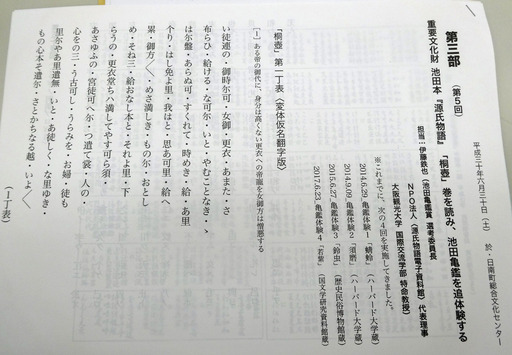 平成三十年六月三十日（土） 於・日南町総合文化センター
第三部 （第５回）
重要文化財 池田本『源氏物語』「桐壺」巻を読み、池田亀鑑を追体験する
担当：伊藤鉄也（池田亀鑑賞 選考委員長
ＮＰＯ法人〈源氏物語電子資料館〉代表理事
大阪観光大学 国際交流学部 特命教授）
※これまでに、次の４回を実施してきました。
2014.6.28_亀鑑体験１「蜻蛉」（ハーバード大学蔵）
2014.9.09_亀鑑体験２「須磨」（ハーバード大学蔵）
2015.6.27_亀鑑体験３「鈴虫」（歴史民俗博物館蔵）
2017.6.23_亀鑑体験４「若紫」（国文学研究資料館蔵）
「桐壺」第一丁表〈変体仮名翻字版〉
［1］ある帝の御代に、身分は高くない更衣への帝寵を女御方は憎悪する
い徒連の・御時尓可・女御・更衣・あまた・さ
布らひ・給ける・な可尓・いと・やむことなき・ゝ
は尓盤・あらぬ可・すくれて・時めき・給・あ里
个り・はし免よ里・我はと・思あ可里・給へ
累・御方〱・めさ満しき・もの尓・おとし
め・そね三・給おなし本と・それよ里・下
らうの・更衣堂ちハ満してやす可ら須・
あさゆふの・宮徒可へ尓・つ遣て裳・人の・
心をの三・う古可し・うらみを・お婦・徒も
里尓やあ里遣無・いと・あ徒しく・な里ゆき・
もの心本そ遣尓・さとかちなる越・いよ〱
（１丁表）